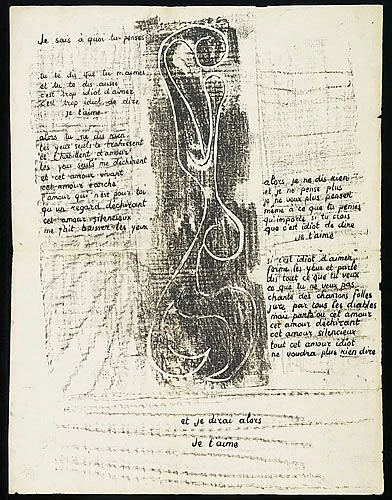 Je sais à quoi tu penses
tu te dis que tu m'aimes
et tu te dis aussi
c'est trop idiot d'aimer
c'est trop idiot de dire
je t'aime
alors tu ne dis rien
tes yeux seuls te trahissent
et t'habillent d'amour
tes yeux seuls me déchirent
et cet amour vivant
cet amour caché
l'amour qui n'est pour toi
qu'un regard déchirant
cet amour silencieux
me fait baisser les yeux
alors je ne dis rien
et je ne pense plus
je ne veux plus penser
même à ce que tu penses
qu'importe si tu crois
que c'est idiot de dire
je t'aime
si c'est idiot d'aimer
ferme les yeux et parle
dis tout ce que tu veux
ce que tu ne veux pas
chante des chansons folles
jure par tous les diables
mais parle ou cet amour
cet amour déchirant
cet amour silencieux
tout cet amour idiot
ne voudra plus rien dire
et je dirai alors
Je t'aime